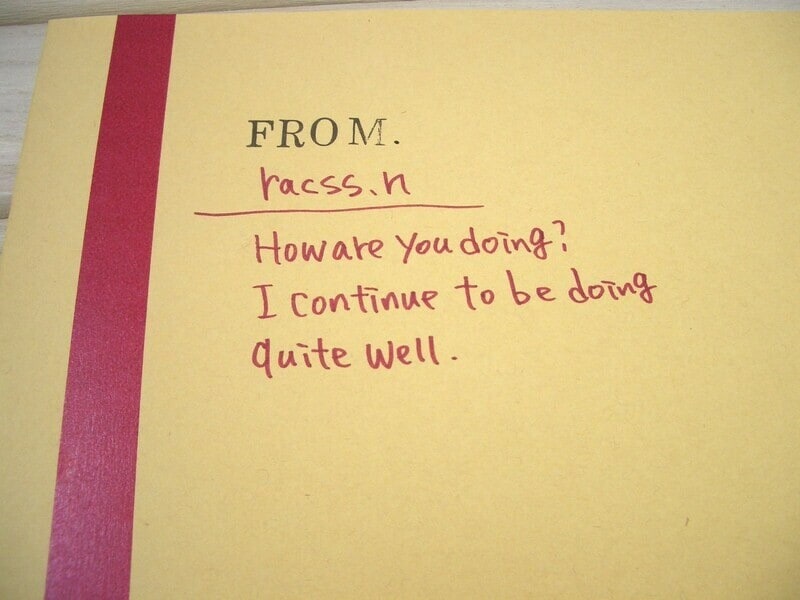 FROM.
racss.n
How are you doing?
I continue to be doing
quite well.